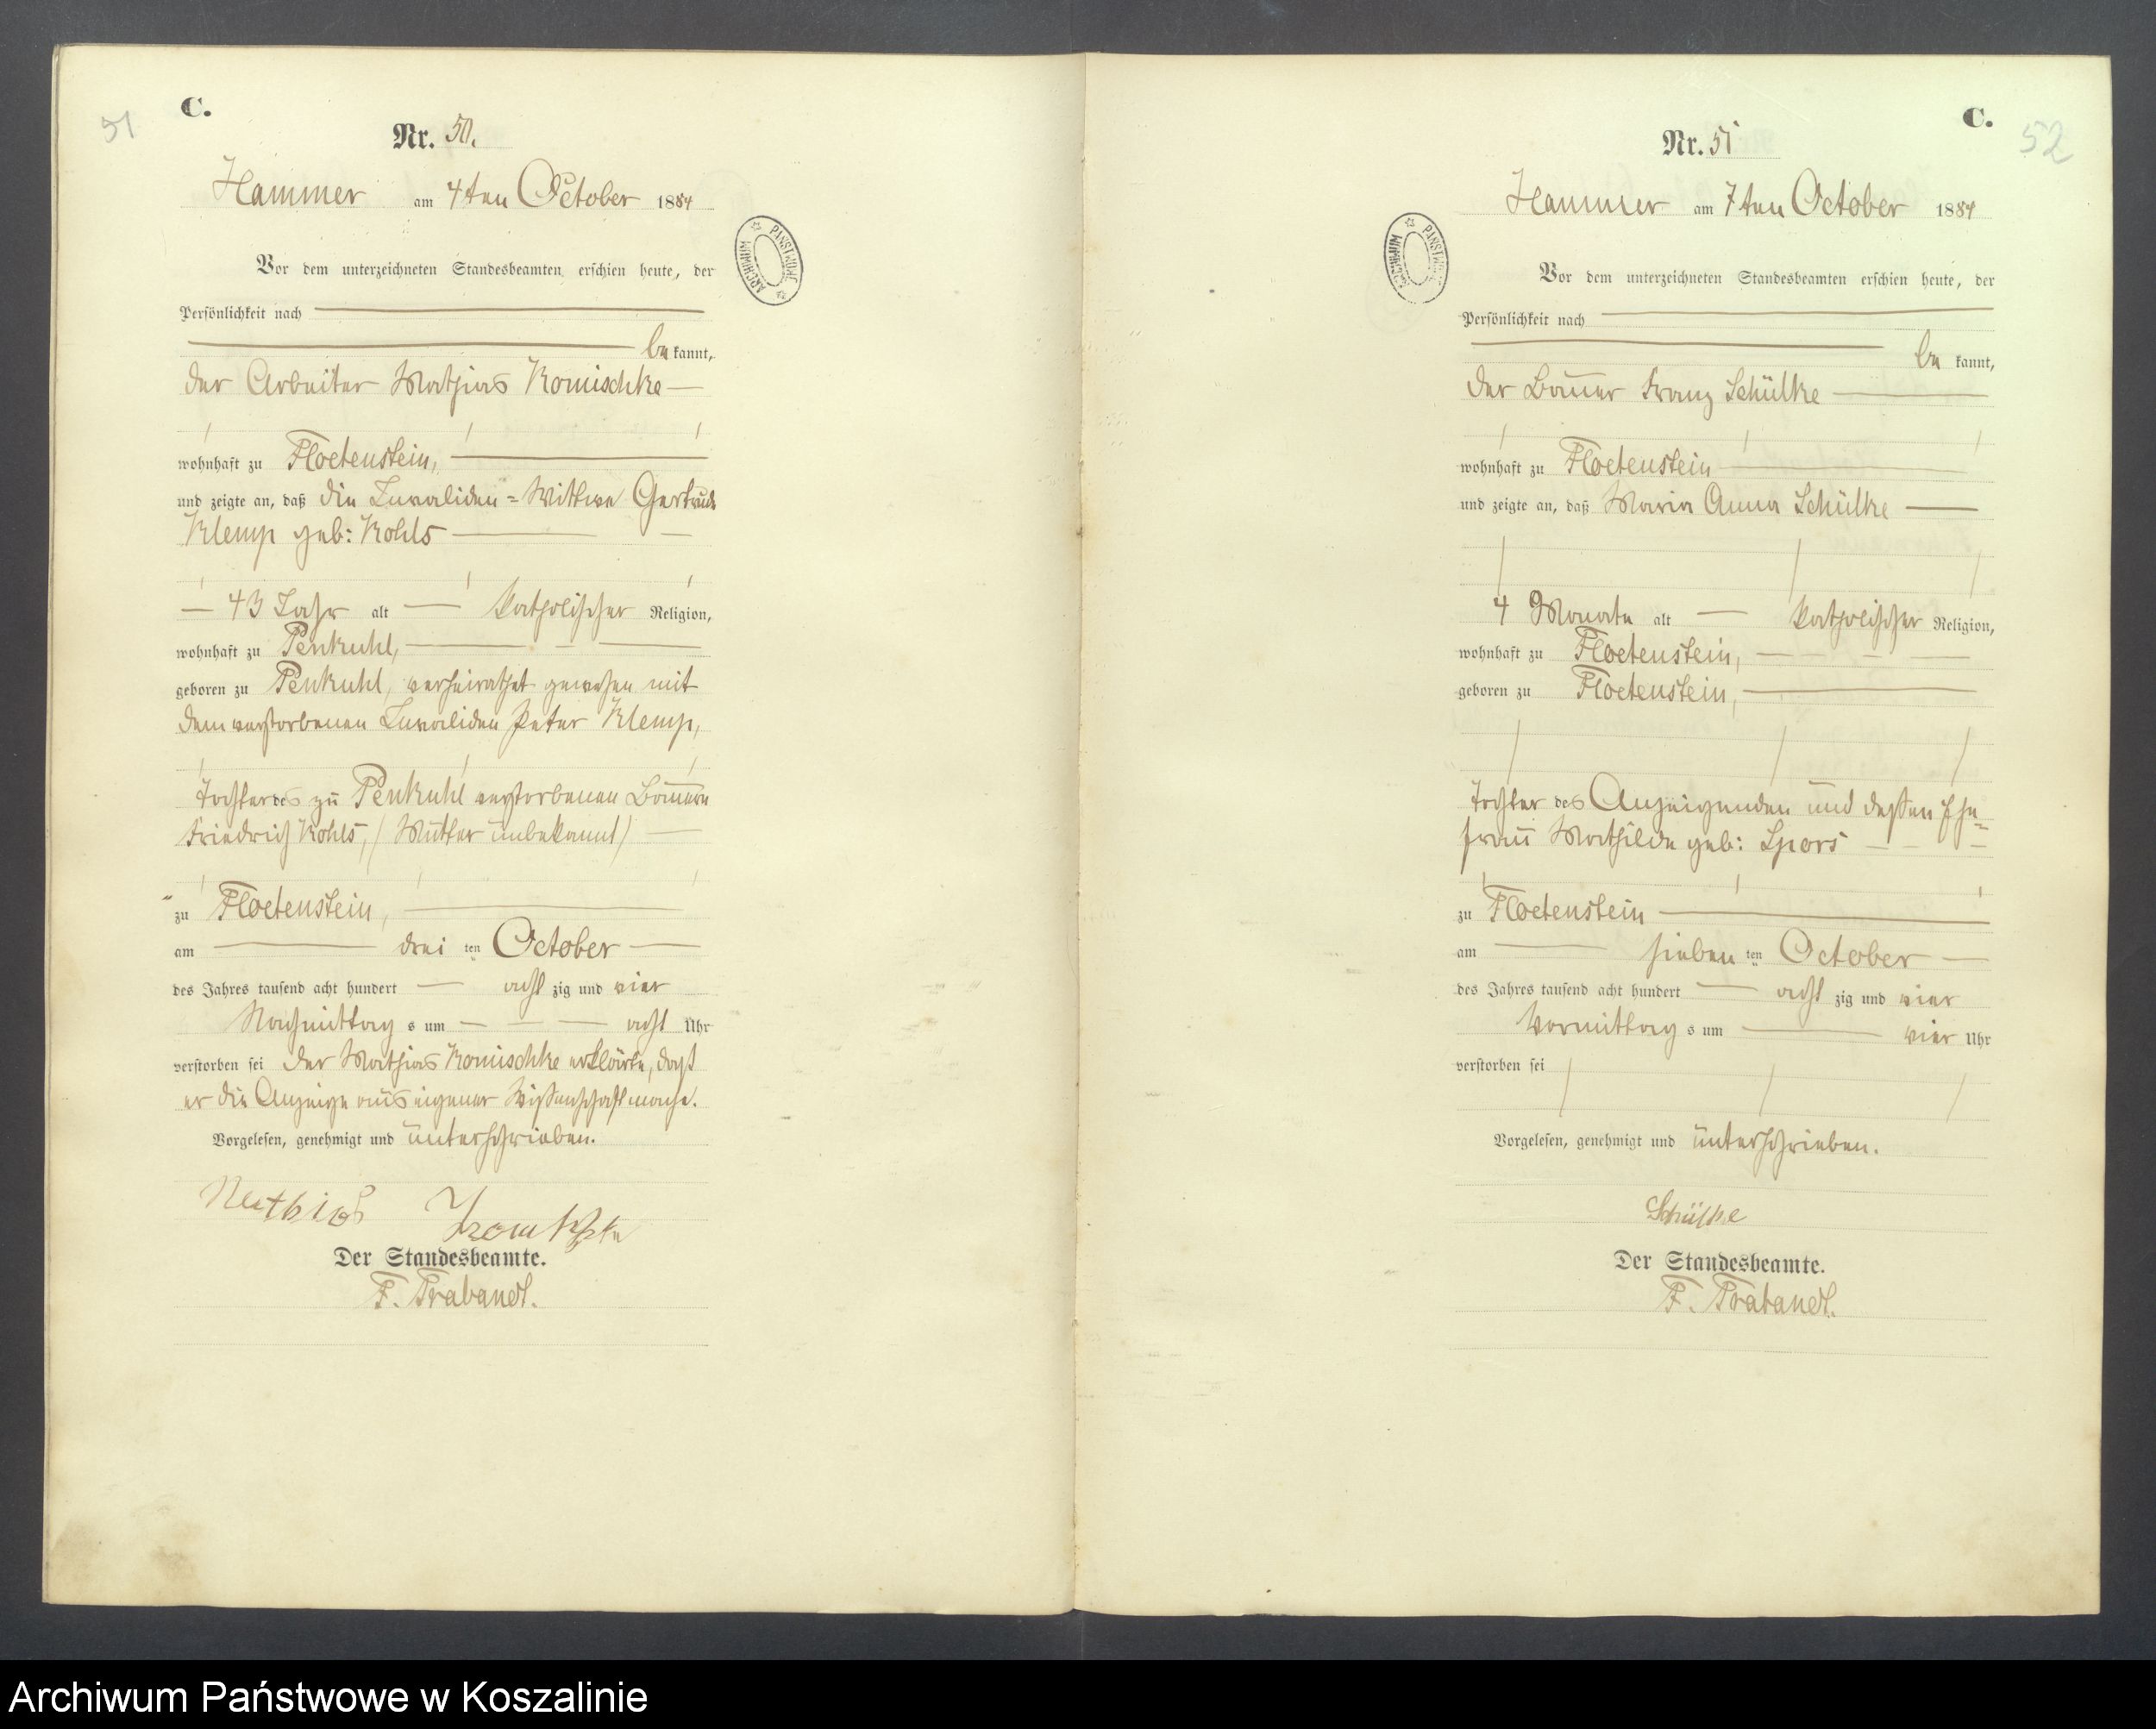 51
C.
Nr. 50.
Hammer am 4ten October 1884
Vor dem unterzeichneten Standesbeamten erschien heute, der
Persönlichkeit nach
be kannt,
der Arbeiter Mathias Komischke
wohnhaft zu Floetenstein,
und zeigte an, daß die Invaliden=Wittwe Gertrude
Klemp geb: Kohls
43 Jahr alt katholischer Religion,
wohnhaft zu Penkuhl,
geboren zu Penkuhl, verheirathet gewesen mit
dem verstorbenen Invaliden Peter Klemp,
Tochter des zu Penkuhl verstorbenen Bauern
Friedrich Kohls, (Mutter unbekannt)
zu Floetenstein,
am drei ten October
des Jahres tausend acht hundert acht zig und vier
Nachmittag s um acht Uhr
verstorben sei der Mathias Komischke erklärte, daß
er die Anzeige aus eigener Wissenschaft mache.
Vorgelesen, genehmigt und unterschrieben.
Mathias
Der Standesbeamte.
F. Trabandt.
ARCHIWUM PAŃSTWOWE
C.
52
Nr. 51
Hammer am 7ten October 1884
Vor dem unterzeichneten Standesbeamten erschien heute, der
Persönlichkeit nach
be kannt,
der Bauer Franz Schülke
wohnhaft zu Floetenstein
und zeigte an, daß Maria Anna Schülke
4 Monate alt katholischer Religion,
wohnhaft zu Floetenstein,
geboren zu Floetenstein,
Tochter des Anzeigenden und dessen Ehe=
frau Mathilde geb: Spors
zu Floetenstein
am sieben ten October
des Jahres tausend acht hundert acht zig und vier
Vormittag s um vier Uhr
verstorben sei
Vorgelesen, genehmigt und unterschrieben.
Schülke
Der Standesbeamte.
F. Trabandt.
ARCHIWUM PAŃSTWOWE
Archiwum Państwowe w Koszalinie